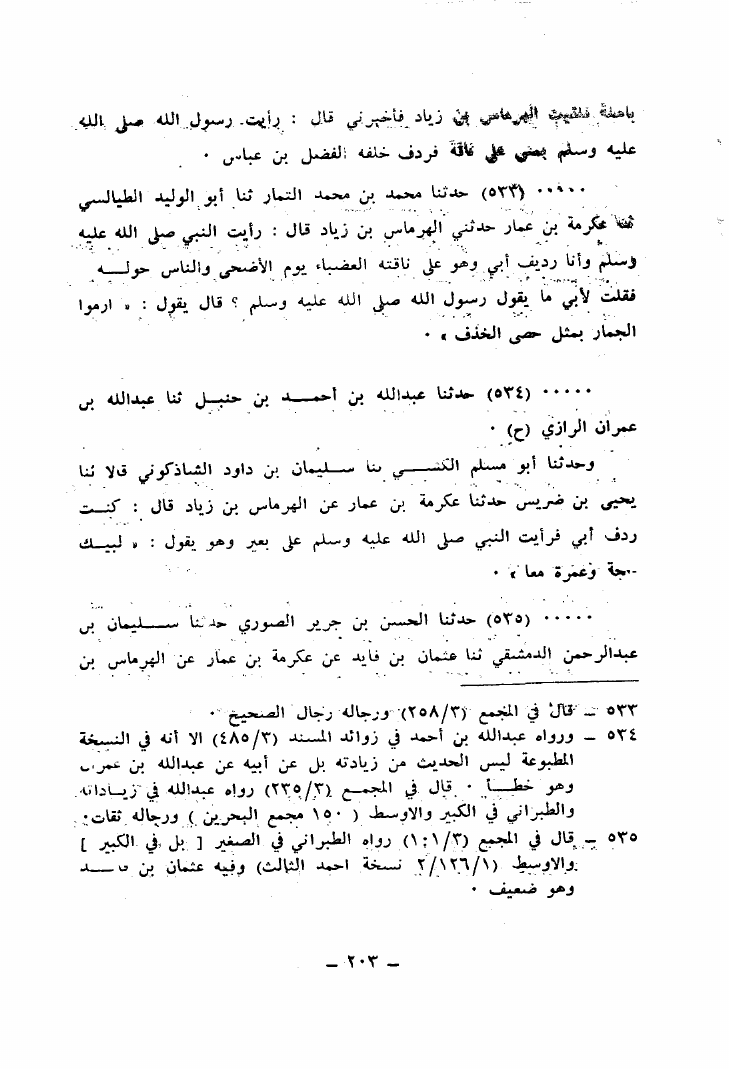 باهلة فلقيت الهرماس بن زياد فأخبرني قال : رأيت رسول الله صلى الله
عليه وسلم بمنى على ناقة فردف خلفه الفضل بن عباس ٠
٠٠٠٠٠ (٥٣٣) حدثنا محمد بن محمد التمار ثنا أبو الوليد الطيالسي
ثنا عكرمة بن عمار حدثني الهرماس بن زياد قال : رأيت النبي صلى الله عليه
وسلم وأنا رديف أبي وهو على ناقته العضباء يوم الأضحى والناس حولــه
فقلت لأبي ما يقول رسول الله صلى الله عليه وسلم ؟ قال يقول : « ارموا
الجمار بمثل حصى الخذف » ٠
٠٠٠٠٠ (٥٣٤) حدثنا عبدالله بن أحمــد بن حنبــل ثنا عبدالله بن
عمران الرازي (ح) ٠
وحدثنا أبو مسلم الكشــي ثنا ســليمان بن داود الشاذكوني قالا ثنا
يحيى بن ضريس حدثنا عكرمة بن عمار عن الهرماس بن زياد قال : كنــت
ردف أبي فرأيت النبي صلى الله عليه وسلم على بعير وهو يقول : « لبيــك
بحجة وعمرة معا » ٠
٠٠٠٠٠ (٥٣٥) حدثنا الحسن بن جرير الصوري حدثنا ســليمان بن
عبدالرحمن الدمشقي ثنا عثمان بن فايد عن عكرمة بن عمار عن الهرماس بن
٥٣٣ ــ قال في المجمع (٢٥٨/٣) ورجاله رجال الصحيح ٠
٥٣٤ ــ ورواه عبدالله بن أحمد في زوائد المسند (٤٨٥/٣) الا أنه في النسخة
المطبوعة ليس الحديث من زيادته بل عن أبيه عن عبدالله بن عمران
وهو خطــأ ٠ قال في المجمــع (٢٣٥/٣) رواه عبدالله في زيــاداته
والطبراني في الكبير والاوسط ( ١٥٠ مجمع البحرين ) ورجاله ثقات ٠
٥٣٥ ــ قال في المجمع رواه الطبراني في الصغير [ بل في الكبير ]
والاوسط (٢/١٢٦/١ نسخة احمد الثالث) وفيه عثمان بن
وهو ضعيف ٠
ــ ٢٠٣ ــ